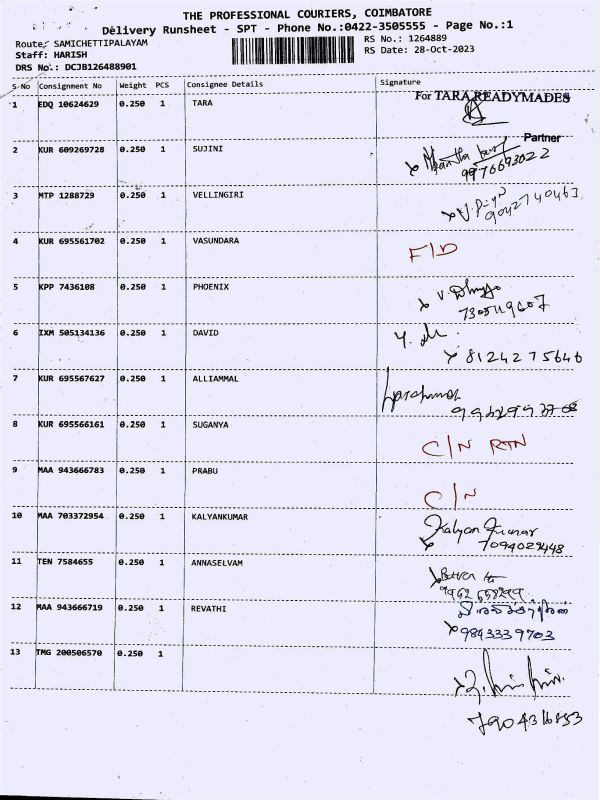 THE PROFESSIONAL COURIERS, COIMBATORE
Delivery Runsheet - SPT - Phone No.:0422-3505555 - Page No.:1
Route: SAMICHETTIPALAYAM
RS No.: 1264889
Staff: HARISH
RS Date: 28-Oct-2023
DRS No.: DCJB126488901
S-No Consignment No Weight PCS Consignee Details Signature
1 EDQ 10624629 0.250 1 TARA
For TARA READYMADES
Partner
2 KUR 609269728 0.250 1 SUJINI
9976693022
3 MTP 1288729 0.250 1 VELLINGIRI
9042740463
4 KUR 695561702 0.250 1 VASUNDARA
F/D
5 KPP 7436108 0.250 1 PHOENIX
6 IXM 505134136 0.250 1 DAVID
8124275646
7 KUR 695567627 0.250 1 ALLIAMMAL
8 KUR 695566161 0.250 1 SUGANYA
C/N RTN
9 MAA 943666783 0.250 1 PRABU
C/N
10 MAA 703372954 0.250 1 KALYANKUMAR
Kalyan Kumar
11 TEN 7584655 0.250 1 ANNASELVAM
12 MAA 943666719 0.250 1 REVATHI
9843339703
13 TMG 200506570 0.250 1